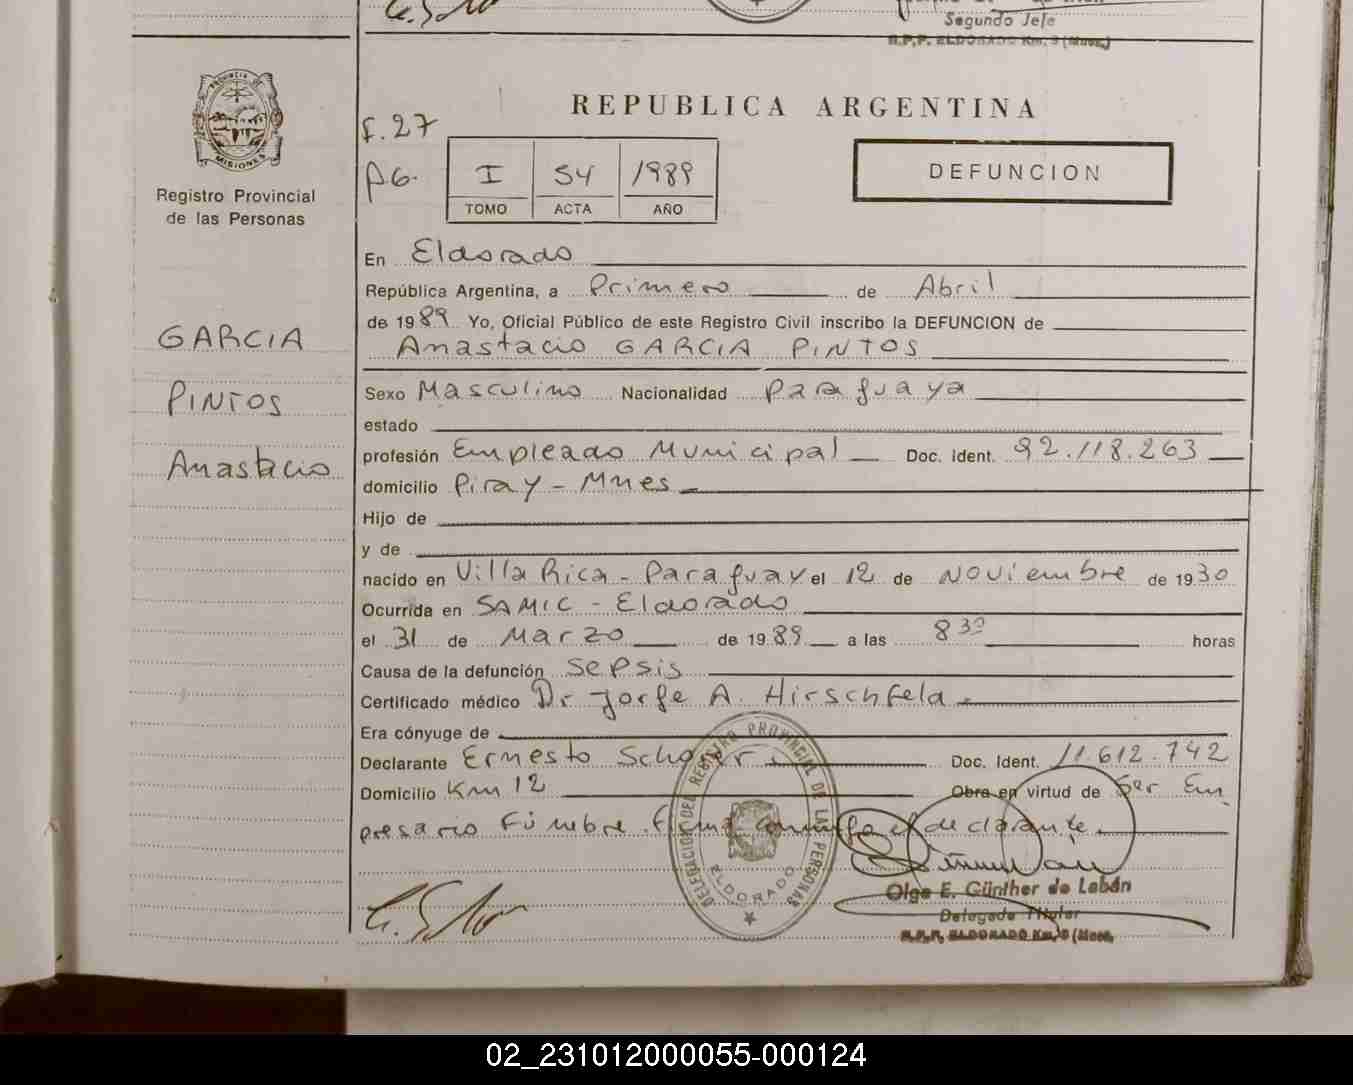 Segundo Jefe
R.P.P. ELDORADO Km. 9 (Mnes.)
PROVINCIA DE
MISIONES
Registro Provincial
de las Personas
GARCIA
PINTOS
Anastacio
F. 27
REPUBLICA ARGENTINA
I 54 1989
TOMO ACTA AÑO
DEFUNCION
En Eldorado
República Argentina, a Primero de Abril
de 1989 Yo, Oficial Público de este Registro Civil inscribo la DEFUNCION de
Anastacio GARCIA PINTOS
Sexo Masculino Nacionalidad Paraguaya
estado
profesión Empleado Municipal Doc. Ident. 92.118.263
domicilio Piray - Mnes
Hijo de
y de
nacido en Villa Rica - Paraguay el 12 de Noviembre de 1930
Ocurrida en SAMIC - Eldorado
el 31 de Marzo de 1989 a las 8 30 horas
Causa de la defunción Sepsis
Certificado médico Dr Jorge A. Hirschfeld
Era cónyuge de
Declarante Ernesto Doc. Ident. 11.612.742
Domicilio Km 12 Obra en virtud de Ser Em
presario Fúnebre. Firma conmigo el declarante.
DELEGACION DEL REGISTRO PROVINCIAL DE LAS PERSONAS
ELDORADO
Olga E. Günther de Labán
Delegada Titular
R.P.P. ELDORADO Km. 9 (Mnes.
02_231012000055-000124